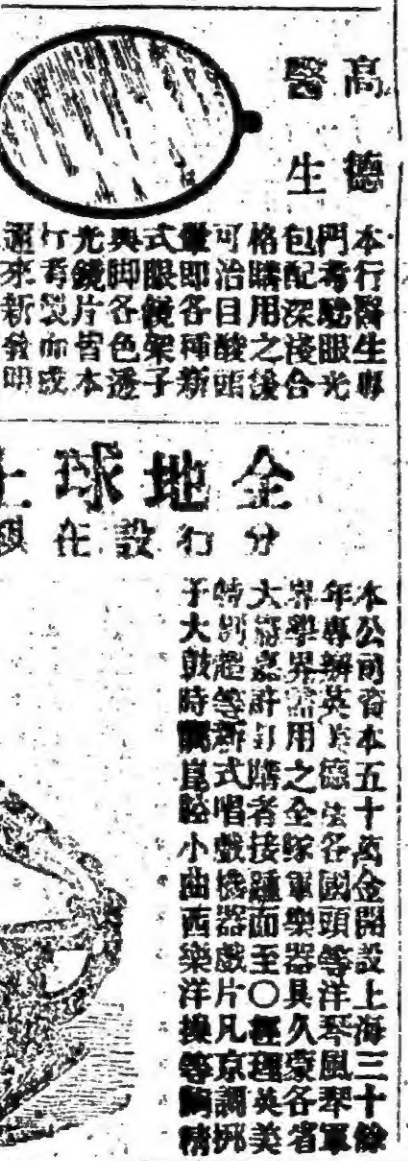 高德
醫生
本行醫生專
門考驗眼光
包配深淺合
格購用之後
可治目酸頭
暈即各種新
式眼鏡架子
與脚各色透
光鏡片皆本
行考製而成
邇來新發明
全地球上
分行設在
本公司資本五十萬金開設上海三十餘
年專辦英美德法各國頭等洋琴風琴軍
界學界需用之全隊軍樂器具久蒙各省
大府嘉許訂購者接踵而至○經理英美
特別超等新式唱戲機器戲片凡京調梆
子大鼓時調崑腔小曲西樂洋操等精